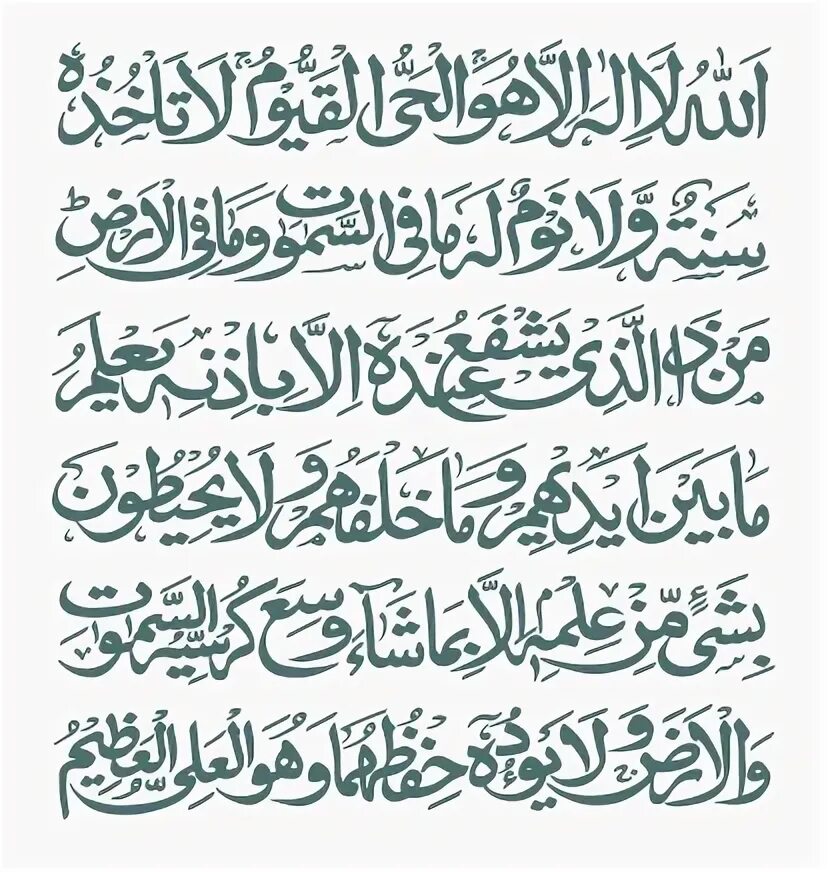 اَللّٰهُ لَا اِلٰهَ اِلَّا هُوَ الْحَیُّ الْقَیُّوْمُ لَا تَاْخُذُهٗ
سِنَةٌ وَّلَا نَوْمٌ لَهٗ مَا فِی السَّمٰوٰتِ وَمَا فِی الْاَرْضِ ط
مَنْ ذَا الَّذِیْ یَشْفَعُ عِنْدَهٗٓ اِلَّا بِاِذْنِهٖ یَعْلَمُ
مَا بَیْنَ اَیْدِیْهِمْ وَمَا خَلْفَهُمْ وَلَا یُحِیْطُوْنَ
بِشَیْءٍ مِّنْ عِلْمِهٖٓ اِلَّا بِمَا شَآءَ وَسِعَ كُرْسِیُّهُ السَّمٰوٰتِ
وَالْاَرْضَ وَلَا یَئُوْدُهٗ حِفْظُهُمَا وَهُوَ الْعَلِیُّ الْعَظِیْمُ